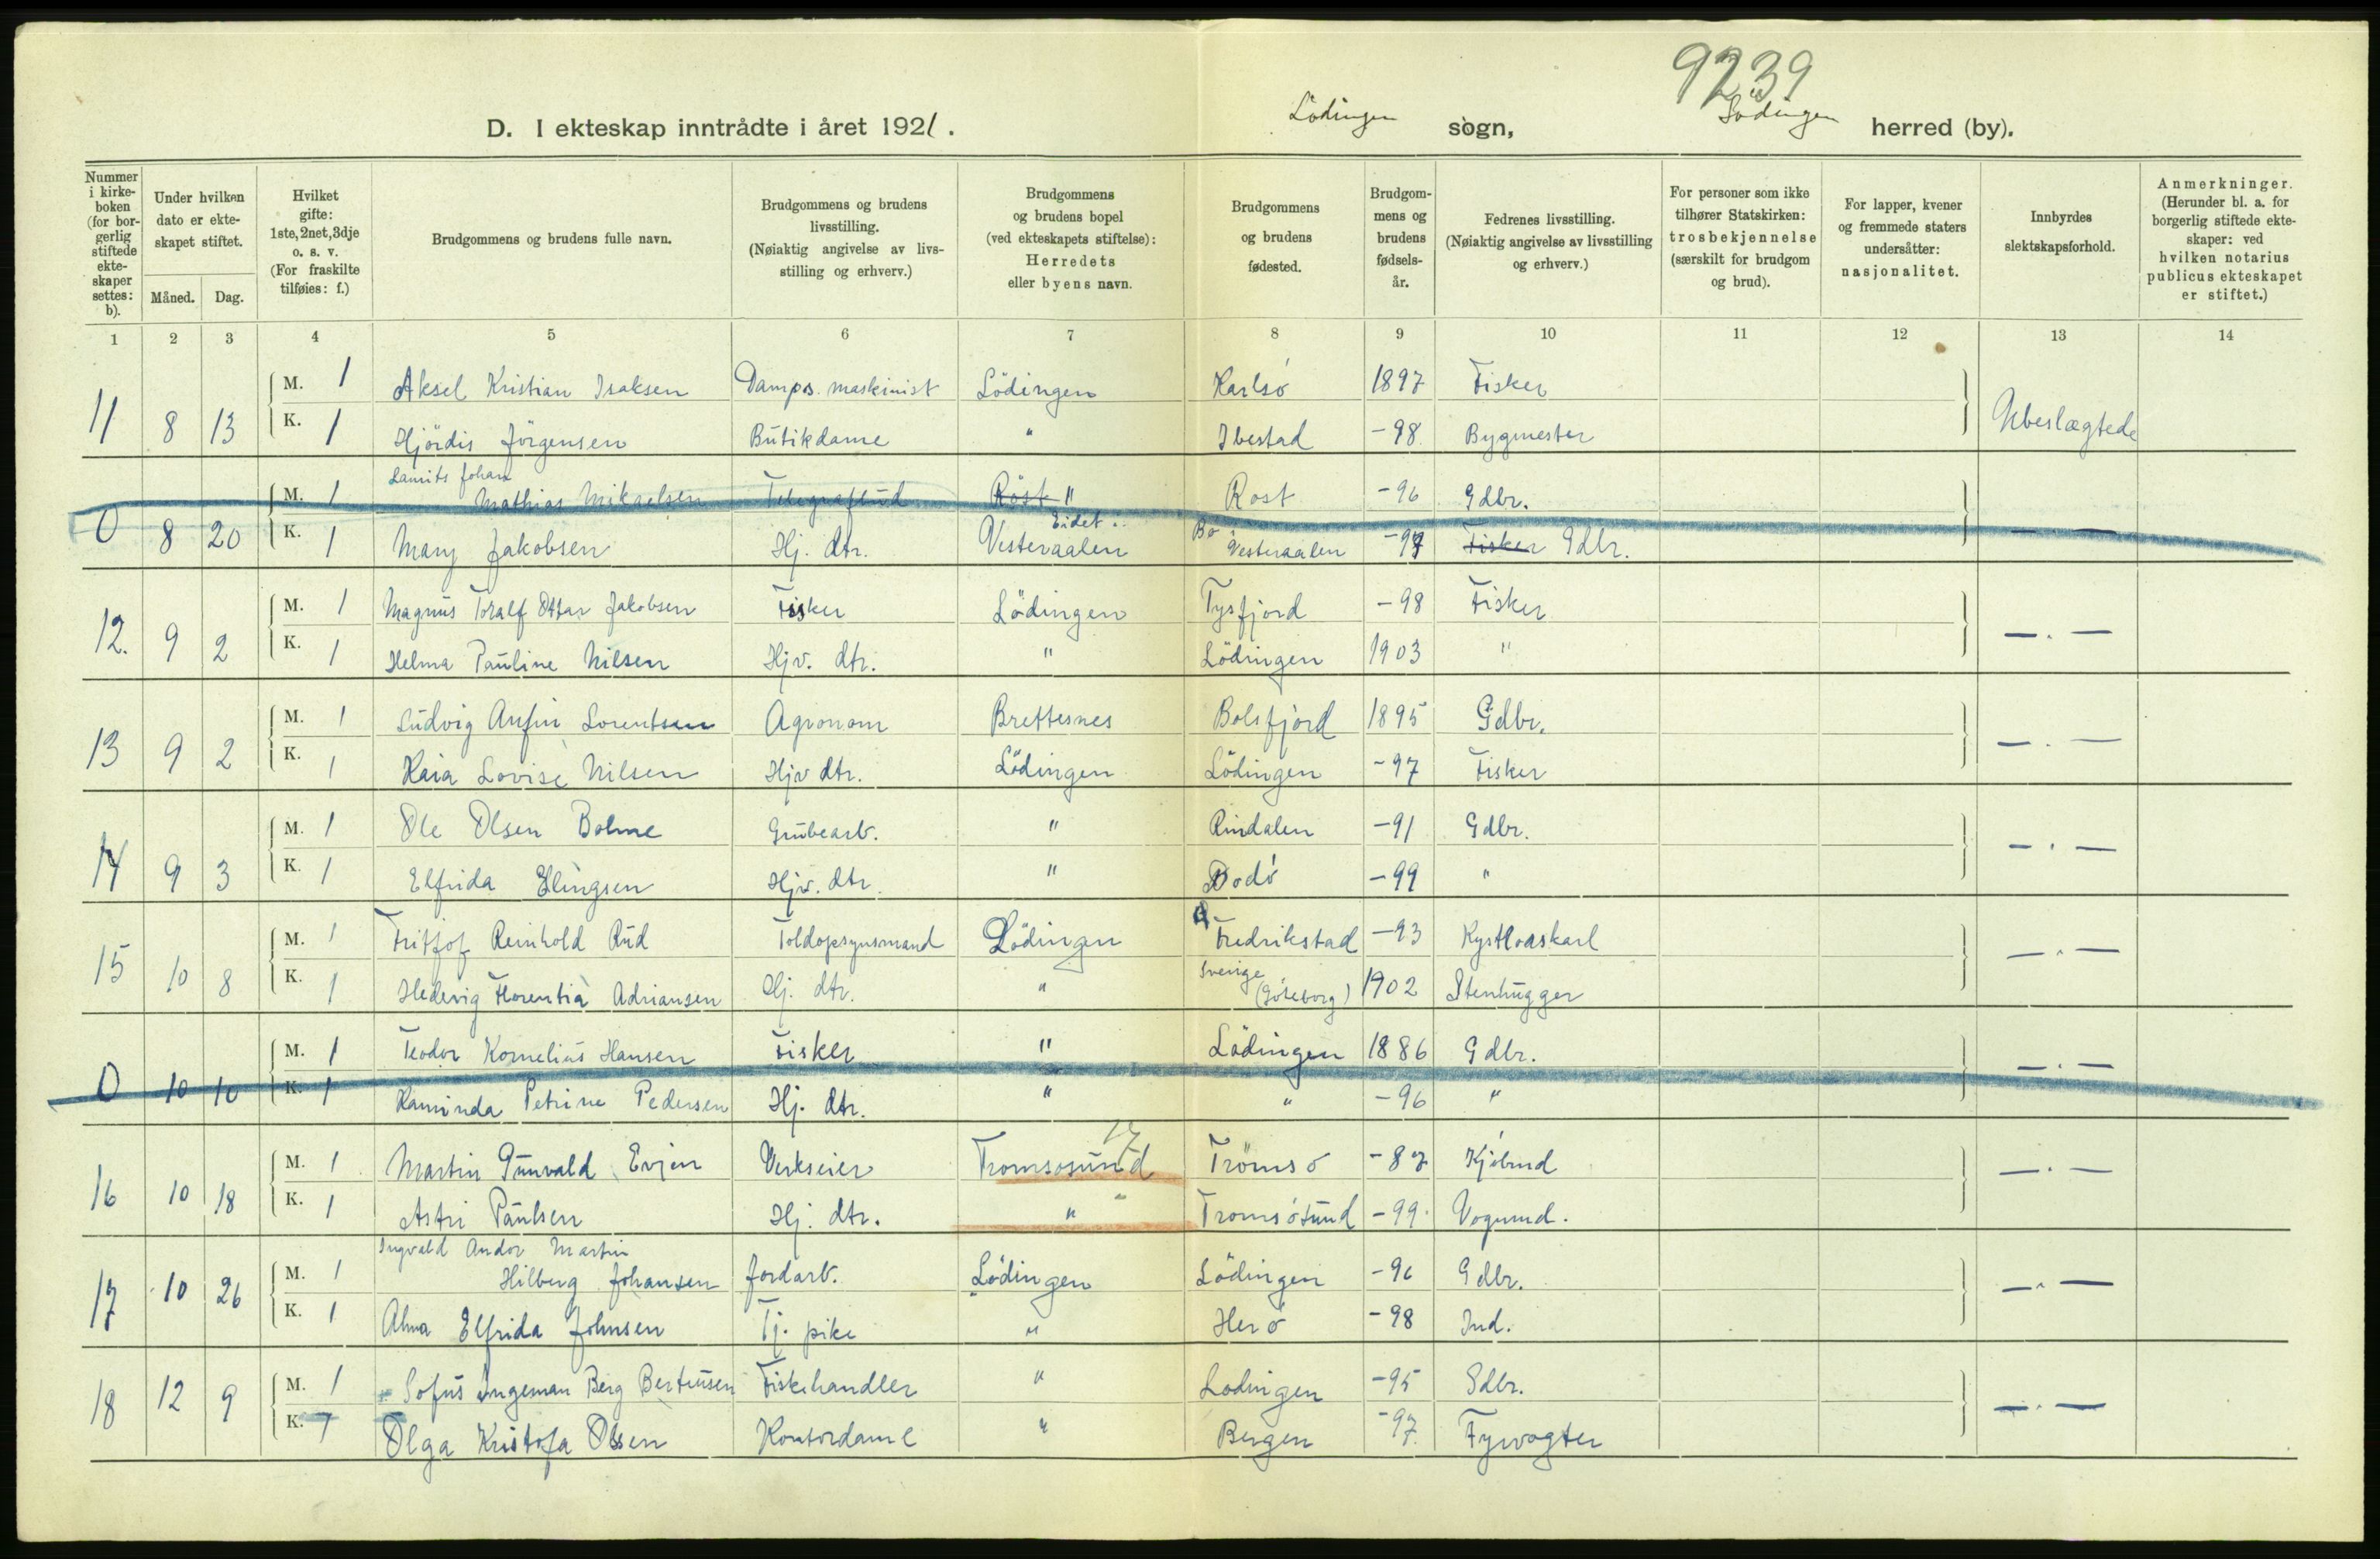 9239
D. I ekteskap inntrådte i året 1921. Lödingen sogn, Lödingen herred (by).
Nummer i kirkeboken (for borgerlig stiftede ekteskaper settes: b).
Under hvilken dato er ekteskapet stiftet.
Måned. Dag.
Hvilket gifte: 1ste, 2net, 3dje o. s. v. (For fraskilte tilføies: f.)
Brudgommens og brudens fulle navn.
Brudgommens og brudens livsstilling. (Nøiaktig angivelse av livsstilling og erhverv.)
Brudgommens og brudens bopel (ved ekteskapets stiftelse): Herredets eller byens navn.
Brudgommens og brudens fødested.
Brudgommens og brudens fødselsår.
Fedrenes livsstilling. (Nøiaktig angivelse av livsstilling og erhverv.)
For personer som ikke tilhører Statskirken: trosbekjennelse (særskilt for brudgom og brud).
For lapper, kvener og fremmede staters undersåtter: nasjonalitet.
Innbyrdes slektskapsforhold.
Anmerkninger. (Herunder bl. a. for borgerlig stiftede ekteskaper: ved hvilken notarius publicus ekteskapet er stiftet.)
1 2 3 4 5 6 7 8 9 10 11 12 13 14
11 8 13 M. 1 Aksel Kristian Isaksen Damps. maskinist Lödingen Karlsö 1897 Fisker Ubeslægtede
K. 1 Hjördis Jörgensen Butikdame " Ibestad -98 Bygmester
0 8 20 M. 1 Laurits Johan Mathias Mikaelsen Telegrafbud Röst " Röst -96 Gdbr. — " —
K. 1 Mary Jakobsen Hj. dtr. Eidet Vesteraalen Bö Vesteraalen -97 Fisker Gdbr.
12. 9 2 M. 1 Magnus Toralf Ottar Jakobsen Fisker Lödingen Tysfjord -98 Fisker — " —
K. 1 Helma Pauline Nilsen Hjv. dtr. " Lödingen 1903 "
13 9 2 M. 1 Ludvig Anfin Lorentsen Agronom Brettesnes Bolsfjord 1895 Gdbr. — " —
K. 1 Kaia Lovise Nilsen Hjv dtr. Lödingen Lödingen -97 Fisker
14 9 3 M. 1 Ole Olsen Bolme Grubearb. " Rindalen -91 Gdbr. — " —
K. 1 Elfrida Ellingsen Hjv. dtr. " Bodö -99 "
15 10 8 M. 1 Fritjof Reinhold Rud Toldopsynsmand Lödingen Fredrikstad -93 Kystloskarl — " —
K. 1 Hedevig Florentia Adriansen Hj. dtr. " Sverige (Göteborg) 1902 Stenhugger
0 10 10 M. 1 Teodor Kornelius Hansen Fisker " Lödingen 1886 Gdbr. — " —
K. 1 Raminda Petrine Pedersen Hj. dtr. " " -96 "
16 10 18 M. 1 Martin Gunvald Evjen Verkseier Tromsosund Tromsö -87 Kjöbmd — " —
K. 1 Astri Paulsen Hj. dtr. " Tromsösund -99 Vognmd.
17 10 26 M. 1 Ingvald Andor Martin Hilberg Johansen Jordarb. Lödingen Lödingen -96 Gdbr. — " —
K. 1 Alma Elfrida Johnsen Tj. pike " Herö -98 Ind.
18 12 9 M. 1 Sofus Ingeman Berg Berteusen Fiskehandler " Lodingen -95 Gdbr. — " —
K. 1 Olga Kristofa Olsen Kontordame " Bergen -97 Fyrvogter